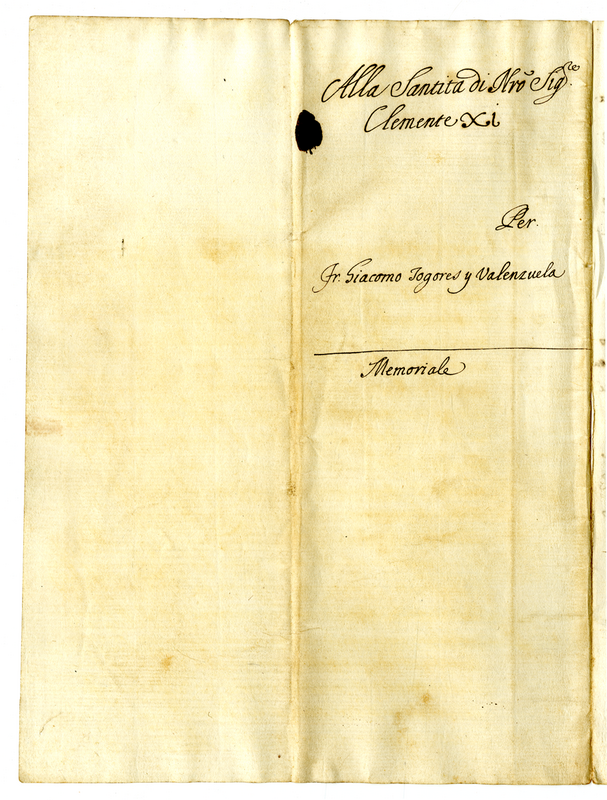 Alla Santità di Nrõ Sig.re
Clemente XI
Per.
Fr. Giacomo Togores y Valenzuela
Memoriale